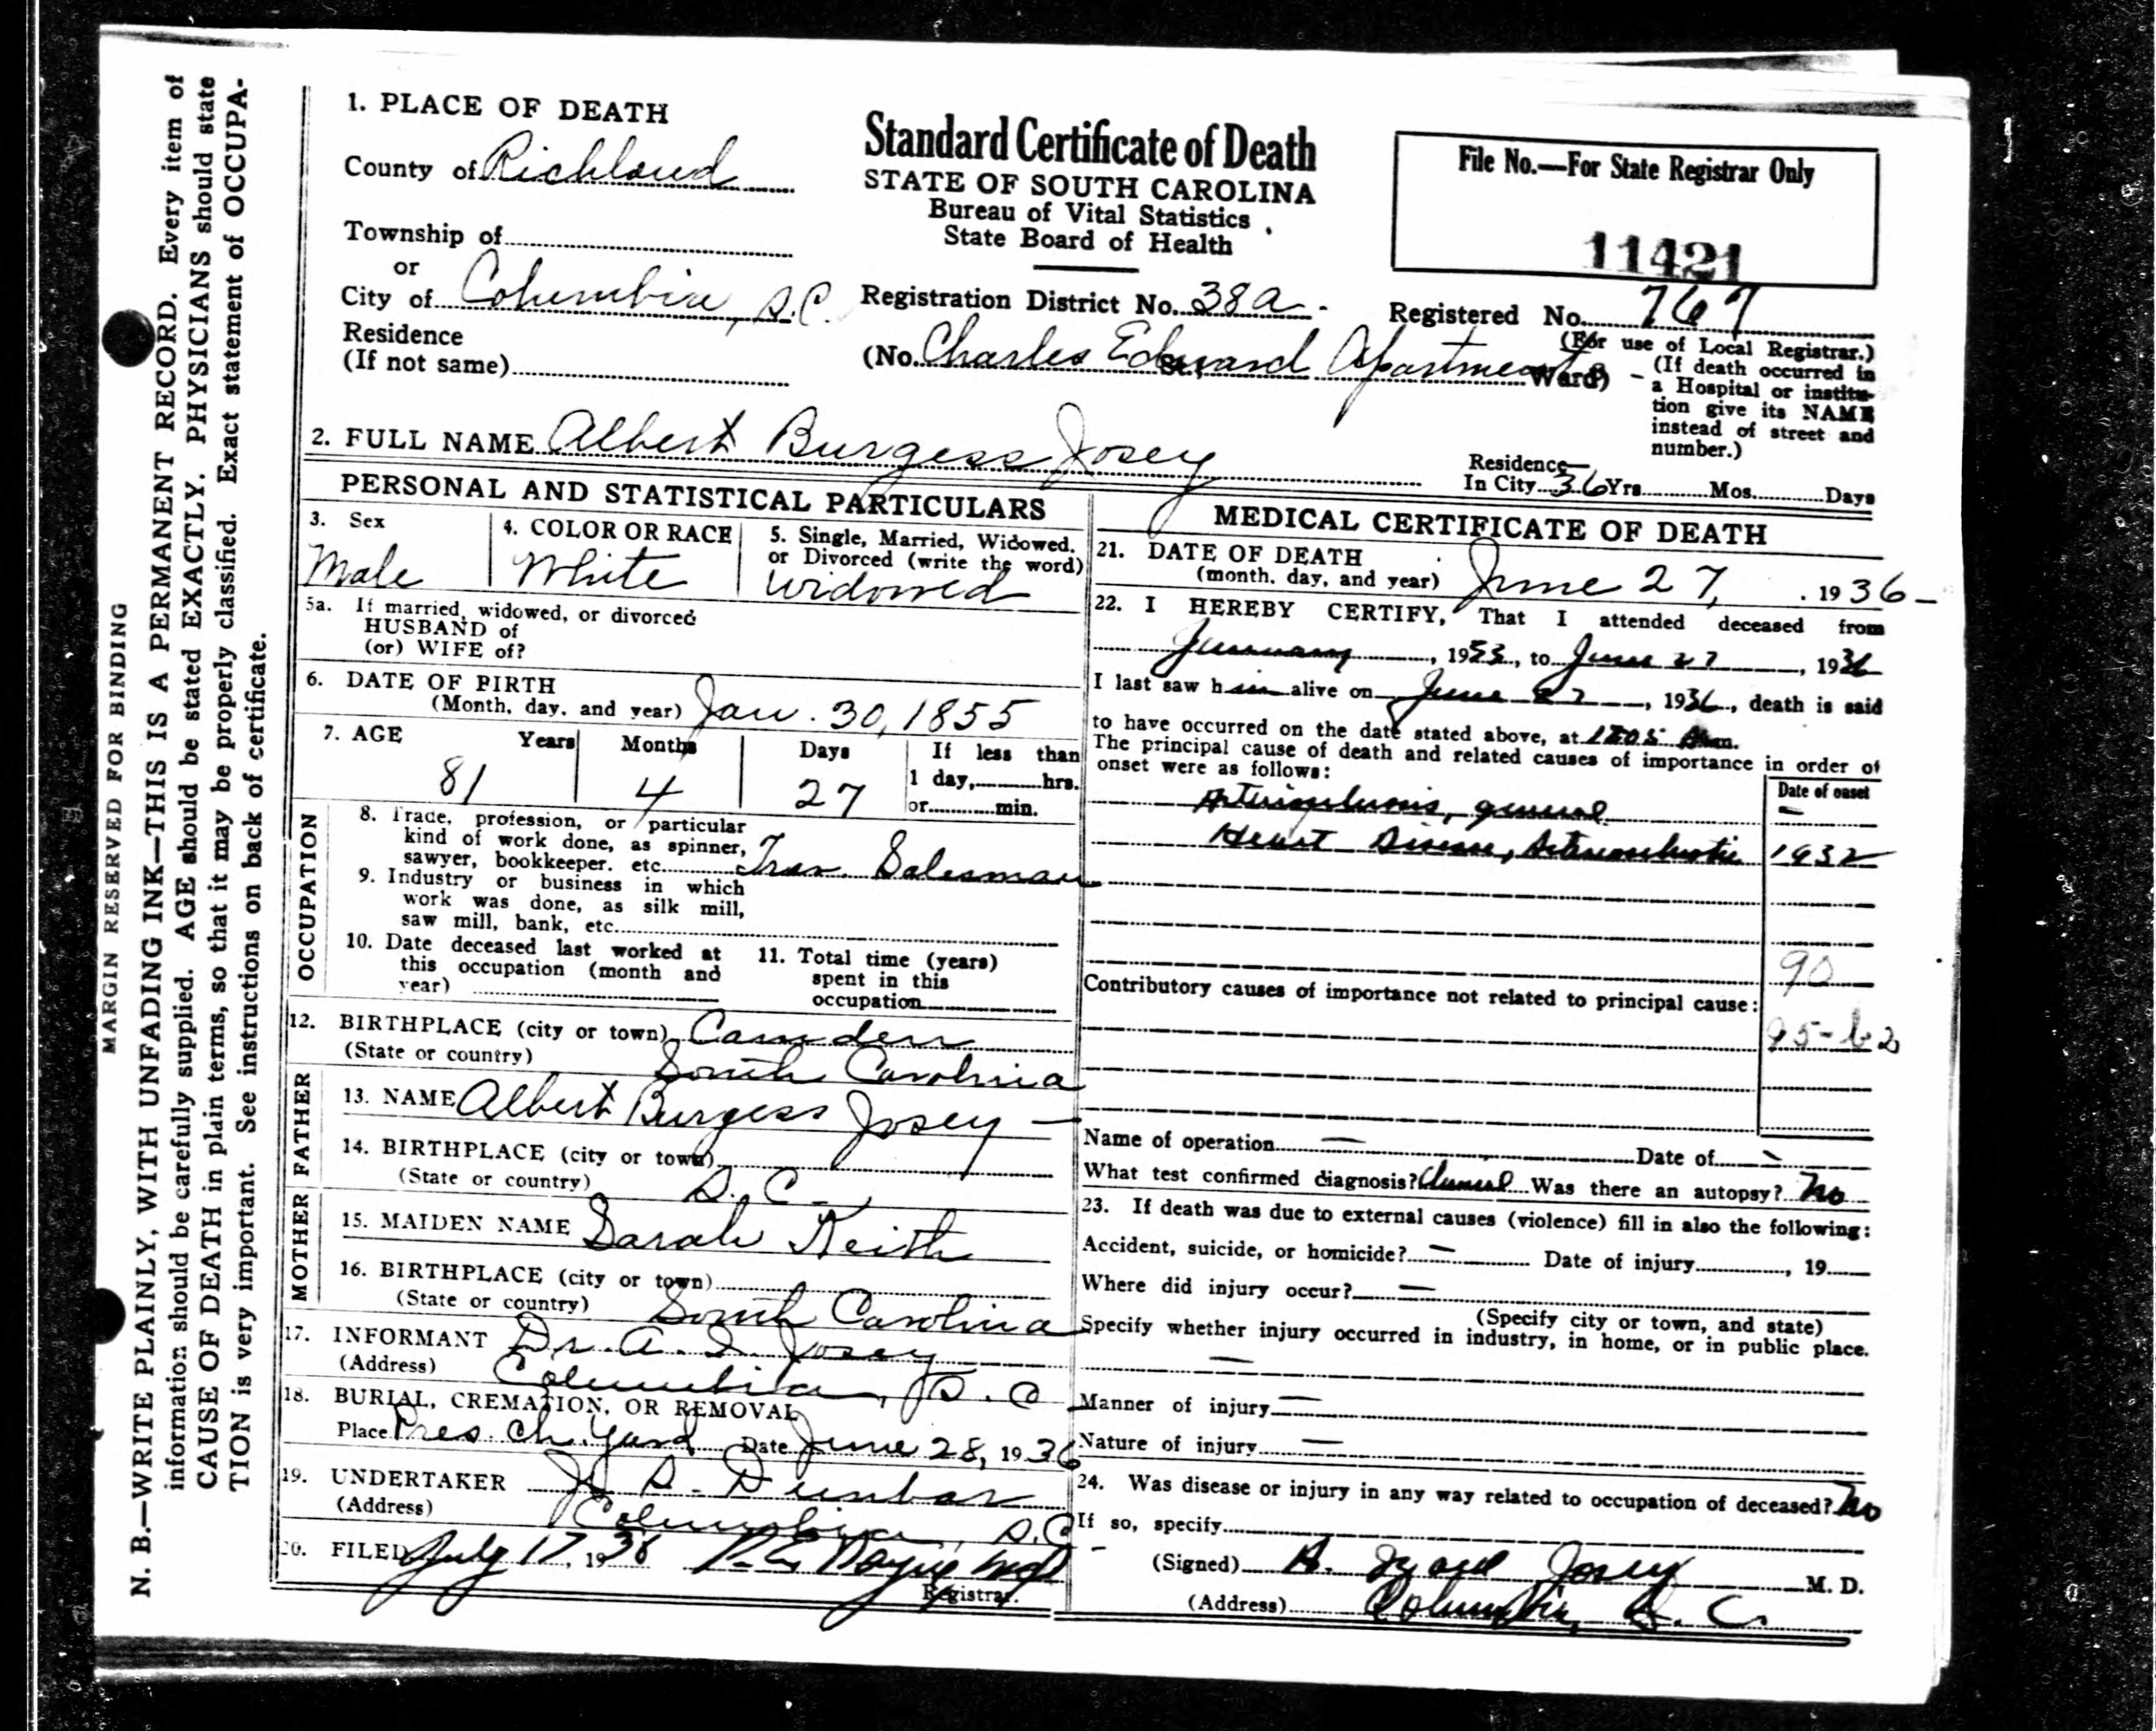 MARGIN RESERVED FOR BINDING
N. B.—WRITE PLAINLY, WITH UNFADING INK—THIS IS A PERMANENT RECORD. Every item of
information should be carefully supplied. AGE should be stated EXACTLY. PHYSICIANS should state
CAUSE OF DEATH in plain terms, so that it may be properly classified. Exact statement of OCCUPA-
TION is very important. See instructions on back of certificate.
Standard Certificate of Death
STATE OF SOUTH CAROLINA
Bureau of Vital Statistics
State Board of Health
File No.—For State Registrar Only
11421
1. PLACE OF DEATH
County of Richland
Township of
or
City of Columbia, S.C.
Residence
(If not same)
Registration District No. 38a
Registered No. 767
(For use of Local Registrar.)
(No. Charles Edward Apartments St., Ward)
(If death occurred in
a Hospital or institu-
tion give its NAME
instead of street and
number.)
2. FULL NAME Albert Burgess Josey
Residence
In City 36 Yrs. Mos. Days
PERSONAL AND STATISTICAL PARTICULARS
3. Sex
Male
4. COLOR OR RACE
White
5. Single, Married, Widowed,
or Divorced (write the word)
Widowed
5a. If married, widowed, or divorced
HUSBAND of
(or) WIFE of?
6. DATE OF BIRTH
(Month, day, and year) Jan. 30, 1855
7. AGE Years Months Days If less than
81 4 27 1 day, hrs.
or min.
OCCUPATION
8. Trade, profession, or particular
kind of work done, as spinner,
sawyer, bookkeeper, etc. Trav. Salesman
9. Industry or business in which
work was done, as silk mill,
saw mill, bank, etc.
10. Date deceased last worked at
this occupation (month and
year)
11. Total time (years)
spent in this
occupation
12. BIRTHPLACE (city or town) Camden
(State or country) South Carolina
FATHER
13. NAME Albert Burgess Josey
14. BIRTHPLACE (city or town)
(State or country) S. C.
MOTHER
15. MAIDEN NAME Sarah Keith
16. BIRTHPLACE (city or town)
(State or country) South Carolina
17. INFORMANT Dr. A. I. Josey
(Address) Columbia, S. C
18. BURIAL, CREMATION, OR REMOVAL
Place Pres. Ch. Yard Date June 28, 1936
19. UNDERTAKER J. S. Dunbar
(Address) Columbia, S.C
20. FILED July 17, 1936
Registrar.
MEDICAL CERTIFICATE OF DEATH
21. DATE OF DEATH
(month, day, and year) June 27, 1936
22. I HEREBY CERTIFY, That I attended deceased from
January, 19, to June 27, 1936
I last saw him alive on June 27, 1936, death is said
to have occurred on the date stated above, at m.
The principal cause of death and related causes of importance in order of
onset were as follows:
Date of onset
Arteriosclerosis, general —
Heart Disease, Arteriosclerotic 1932
90
Contributory causes of importance not related to principal cause:
Name of operation — Date of —
What test confirmed diagnosis? Clinical Was there an autopsy? No
23. If death was due to external causes (violence) fill in also the following:
Accident, suicide, or homicide? — Date of injury , 19
Where did injury occur? —
(Specify city or town, and state)
Specify whether injury occurred in industry, in home, or in public place.
—
Manner of injury —
Nature of injury —
24. Was disease or injury in any way related to occupation of deceased? No
If so, specify
(Signed) A. Izard Josey M. D.
(Address) Columbia, S. C.